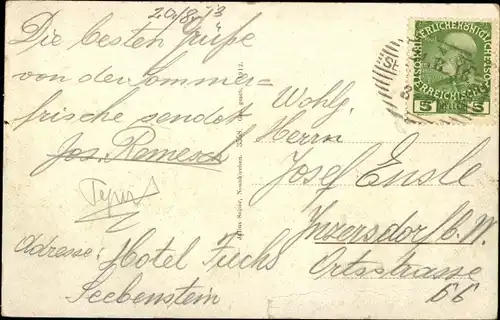 20/8. 13
Die besten Grüße
von der Sommer-
frische sendet
Jos. Remesch
Adresse: Hotel Fuchs
Seebenstein
Wohlg.
Herrn
Josef Ensle
Inzersdorf b. W.
Ortsstrasse
66
KAISERLICHE KÖNIGLICHE
ÖSTERREICHISCHE
5 5